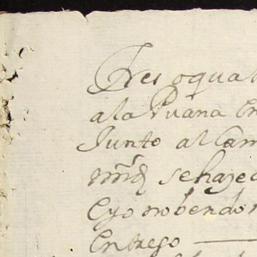 Tres oqua
a la Puana en
Junto al Cam
se haze
Eyo nobendo
Entrego